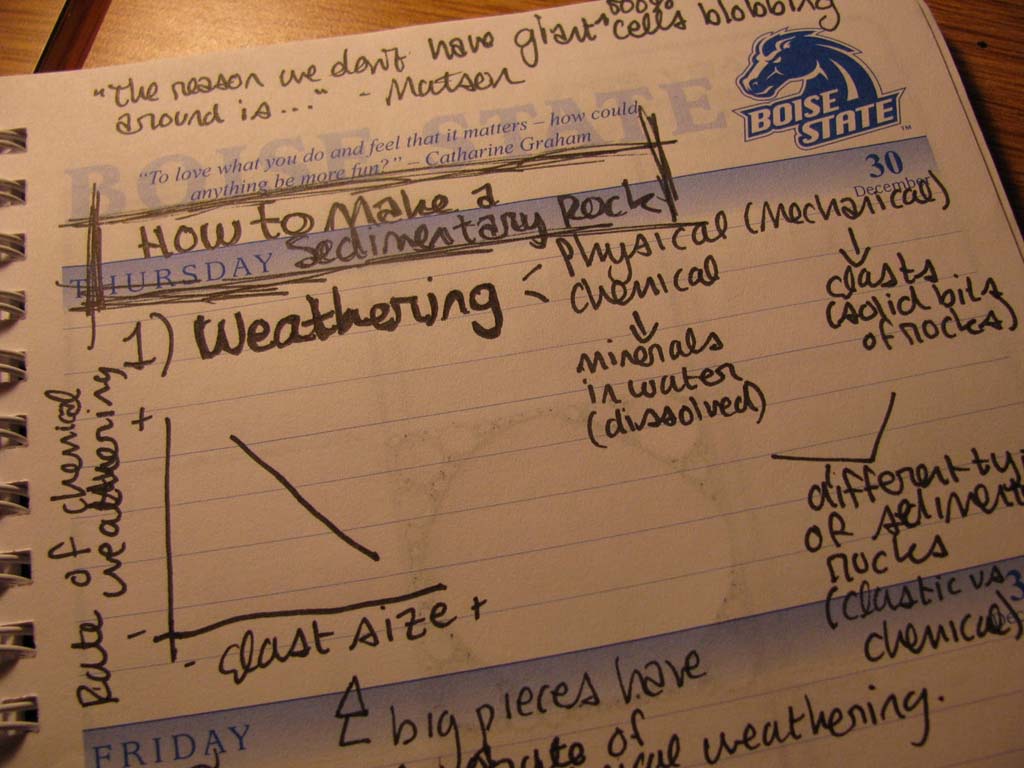 "The reason we don't have giant cells blobbing
around is..." - Matsen
BOISE STATE
"To love what you do and feel that it matters – how could
anything be more fun?" – Catharine Graham
BOISE
STATE
™
30
December
THURSDAY
How to Make a
Sedimentary Rock
1) Weathering < Physical (Mechanical)
chemical
↓
clasts
(solid bits
of rocks)
↓
minerals
in water
(dissolved)
Rate of chemical
weathering
+
-
- clast size +
different
of
rocks
(clastic vs
chemical)
FRIDAY
big pieces have
rate of
weathering.